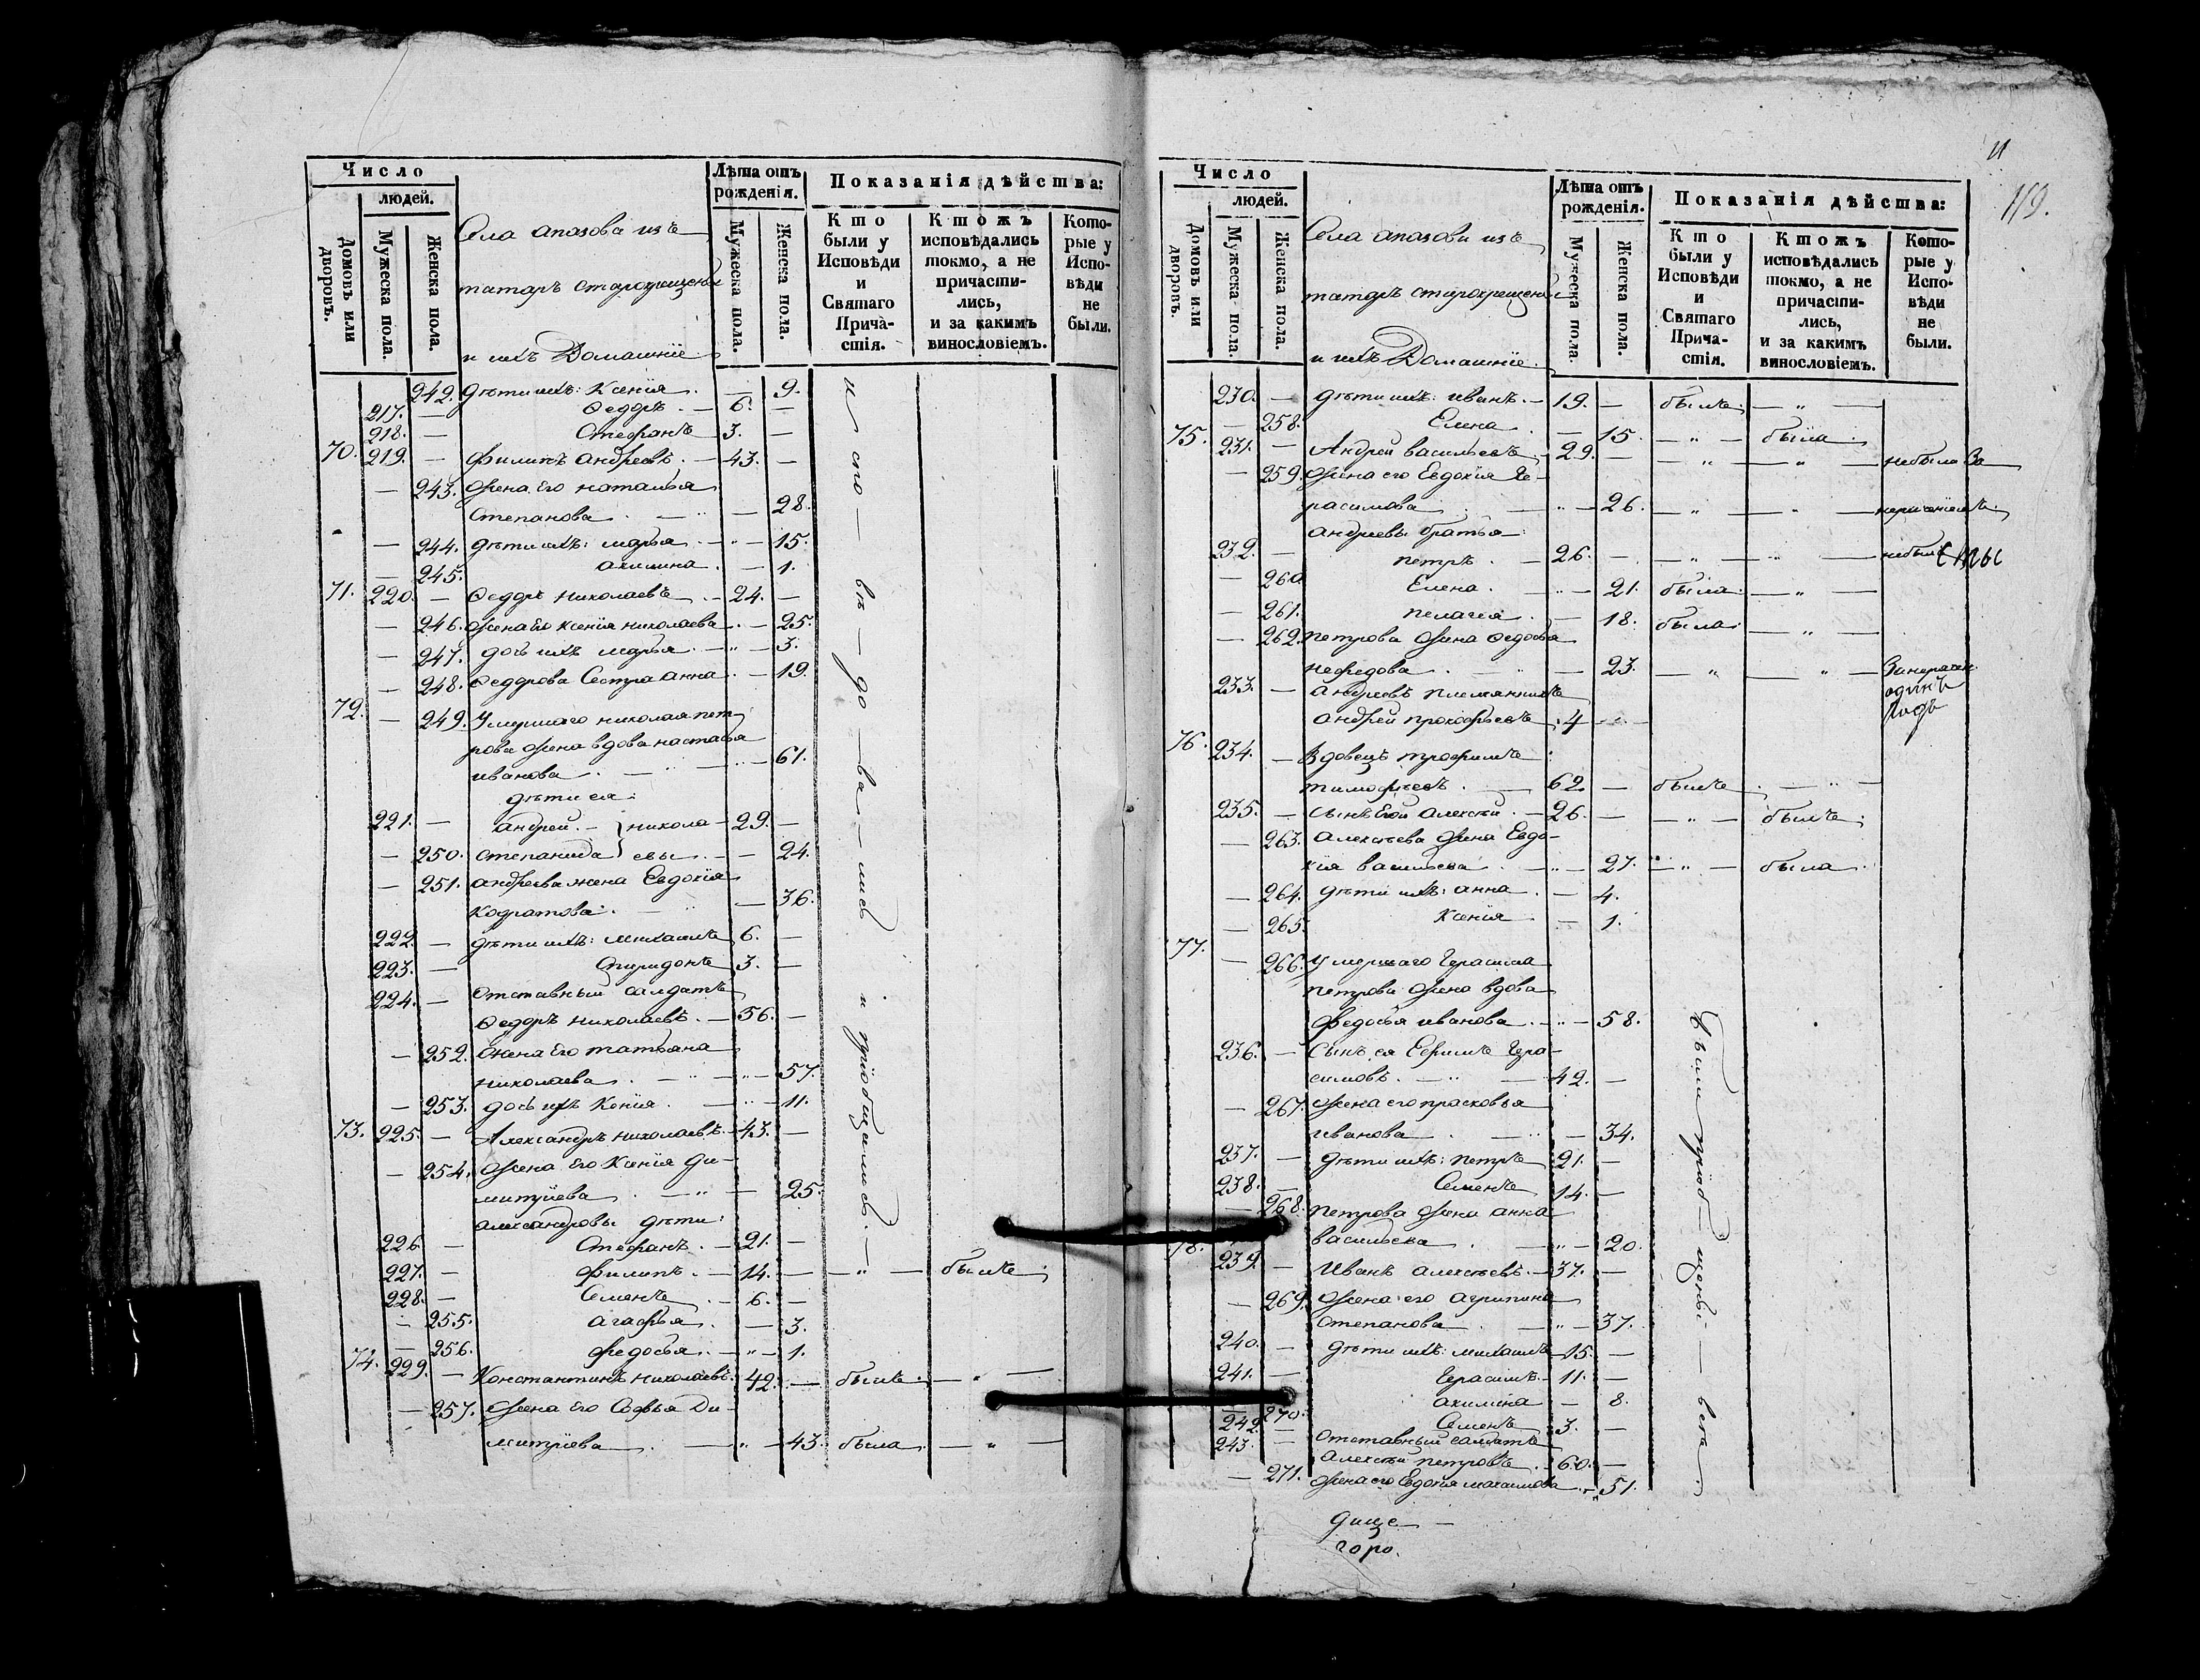 Число
людей.
Домовъ или дворовъ.
Мужеска пола.
Женска пола.
Села апазова изъ
татаръ старокрещеныхъ
и ихъ Домашніе
Лѣта отъ рожденія.
Мужеска пола.
Женска пола.
Показанія дѣйства:
Кто были у Исповѣди и Святаго Причастія.
Ктожъ исповѣдались токмо, а не причастились, и за какимъ винословіемъ.
Которые у Исповѣди не были.
242. дѣти ихъ: Ксенія. — 9.
217. — Ѳедоръ. — 6. —
218. — Стефанъ 3. —
70. 219. — филипъ андреевъ. — 43. —
— 243. жена Его наталья
Степанова. — „ — 28.
— 244. дѣти ихъ: марья. — „ — 15.
— 245. акилина. — 1.
71. 220. — Ѳедоръ николаевъ. — 24. —
— 246. жена Его ксенія николаева. — 25.
— 247. дочь ихъ марья. — „ — 3.
— 248. Ѳедорова Сестра анна. — 19.
72. — 249. Умершаго николая пет-
рова жена вдова настасья
иванова. — „ — 61.
дѣти ея:
221. — андрей. — } никола- 29. —
— 250. степанида } евы. — 24.
— 251. андреева жена Евдокія
кодратова. — „ — 36.
222. — дѣти ихъ: михаилъ 6. —
223. — Спиридонъ 3. —
224. — Отставный салдатъ
Ѳедоръ николаевъ. — 56. —
— 252. жена Его татьяна
николаева. — „ — 57.
— 253. дочь ихъ Ксенія. — „ — 11.
73. 225. — Александръ николаевъ. — 43. —
— 254. жена Его Ксенія Ди-
митріева. — „ — 25.
александровы дѣти:
226. — Стефанъ. — 21. —
227. — филипъ. — 14. — — „ — былъ.
228. — Семенъ. — 6. —
— 255. агафья. — 3.
— 256. федосья. — „ — 1.
74. 229. — Константинъ николаевъ. 42. — былъ. — „ —
— 257. жена Его Софья Ди-
митріева. — „ — 43. была. — „ —
и по — вѣ — до — ва — лись и пріобщились. —
11
119.
Число
людей.
Домовъ или дворовъ.
Мужеска пола.
Женска пола.
Села апазова изъ
татаръ старокрещеныхъ
и ихъ Домашніе.
Лѣта отъ рожденія.
Мужеска пола.
Женска пола.
Показанія дѣйства:
Кто были у Исповѣди и Святаго Причастія.
Ктожъ исповѣдались токмо, а не причастились, и за какимъ винословіемъ.
Которые у Исповѣди не были.
230. — дѣти ихъ: иванъ. — 19. — былъ. — „ —
— 258. Елена. — 15. — „ — была.
75. 231. — Андрей васильевъ. — 29. — — „ — „ — небыли За
— 259. жена его Евдокія Ге-
расимова. — „ — 26. — „ — „ —
андреевы братья
232. — петръ. — 26. — — „ — „ —
— 260. Елена. — „ — 21. была. — „ —
— 261. пелагея. — 18. была. — „ —
— 262. петрова жена Ѳедосья
нефедова. — „ — 23. — „ — „ —
одинъ
годъ
233. — андреевъ племянникъ
андрей прокофьевъ. 4 —
76. 234. — вдовецъ трофимъ
тимофеевъ. — 62. — былъ. — „ —
235. — сынъ Его алексѣй. — 26. — — „ — былъ.
— 263. алексѣева жена Евдо-
кія васильева. — „ — 27. — „ — была.
— 264. дѣти ихъ: анна. — 4.
— 265. Ксенія — 1.
77. — 266. умершаго Герасима
петрова жена вдова
федосья иванова. — „ — 58.
236. — Сынъ ея Ефимъ Гера-
симовъ. — „ — 42. —
— 267. жена его прасковья
иванова. — „ — 34.
237. — дѣти ихъ: петръ 21. —
238. — Семенъ 14. —
— 268. петрова жена анна
васильева. — „ — 20.
78. 239. — Иванъ алексѣевъ. — 37. —
— 269. жена его агрипина
Степанова. — „ — 37.
240. — дѣти ихъ: михаилъ 15. —
241. — Герасимъ. — 11. —
— 270. акилина — 8.
242. — Семенъ 3. —
243. — Отставный салдатъ
алексѣй петровъ. — 60. —
— 271. жена его Евдокія максимова. — „ — 51.